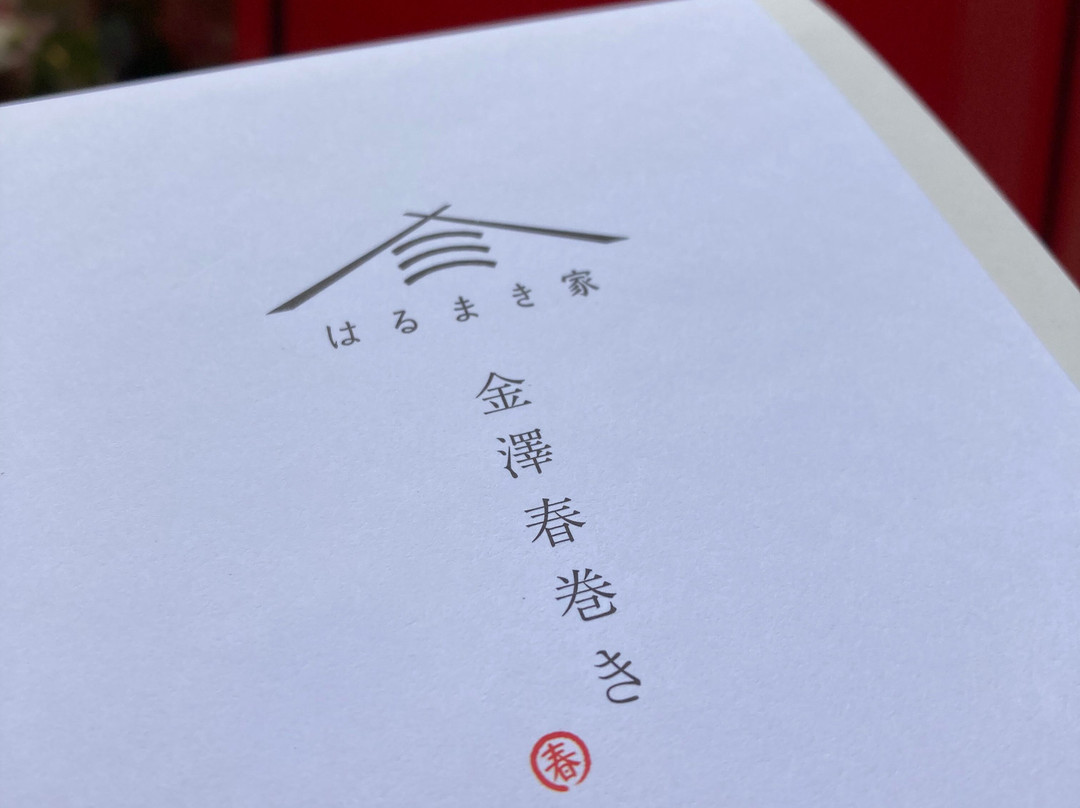 はるまき家
金澤春巻き
春